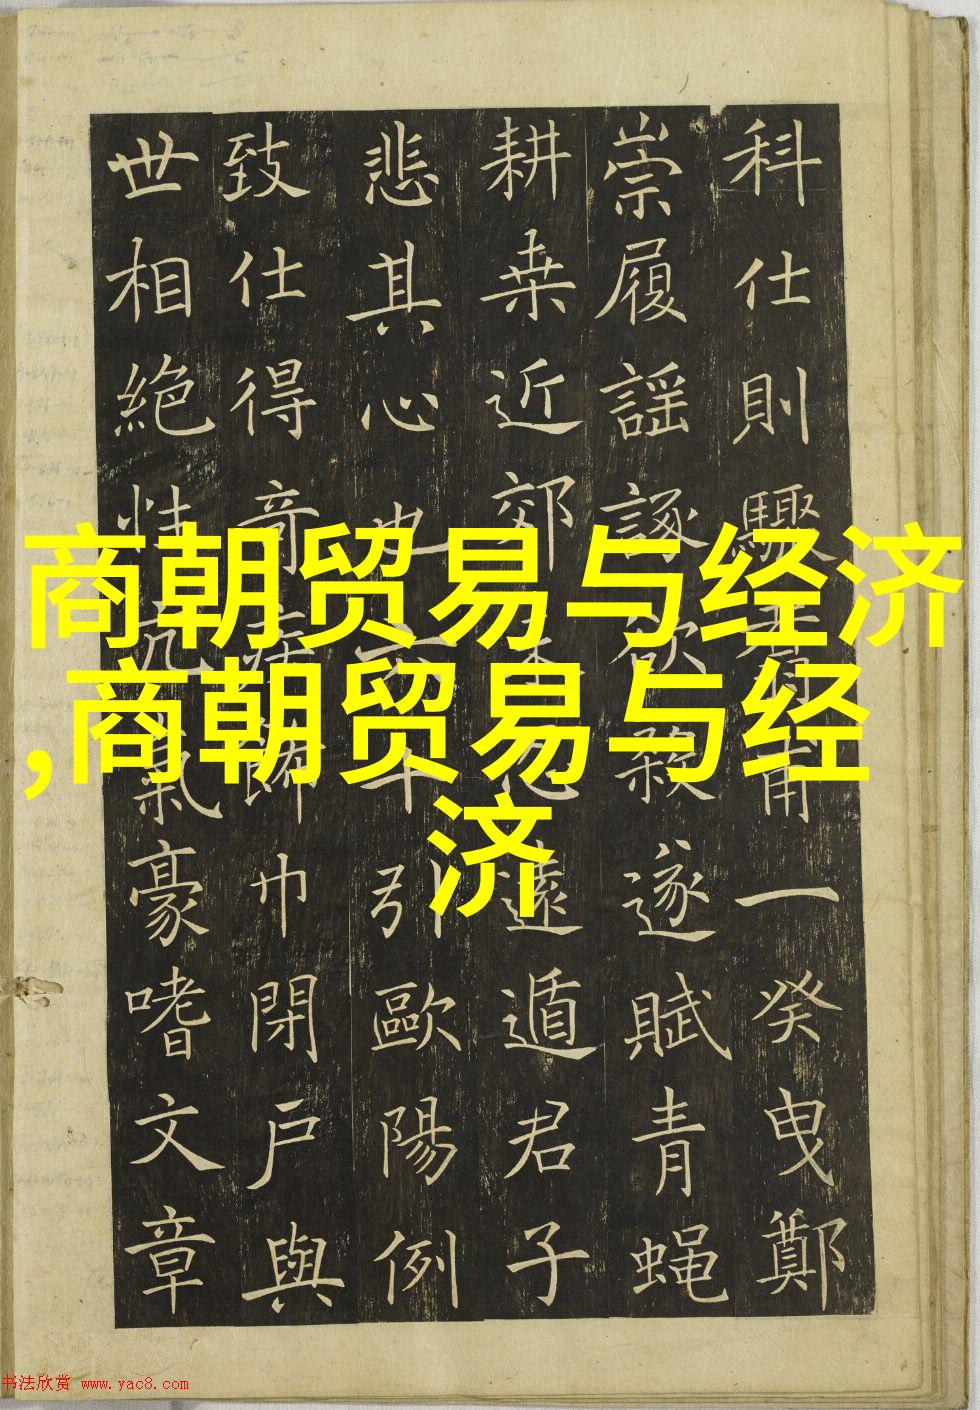 商朝贸易与经济
,商朝贸易与经
济
科仕則驟甫一癸曳鄭
崇履謡諑欲遂賦青蝇
耕桒近郊遠遁君子
悲其心也引歐陽例
致仕得巾閉戶與
世相絶情氣豪嗜文章
书法欣赏 www.yac8.com